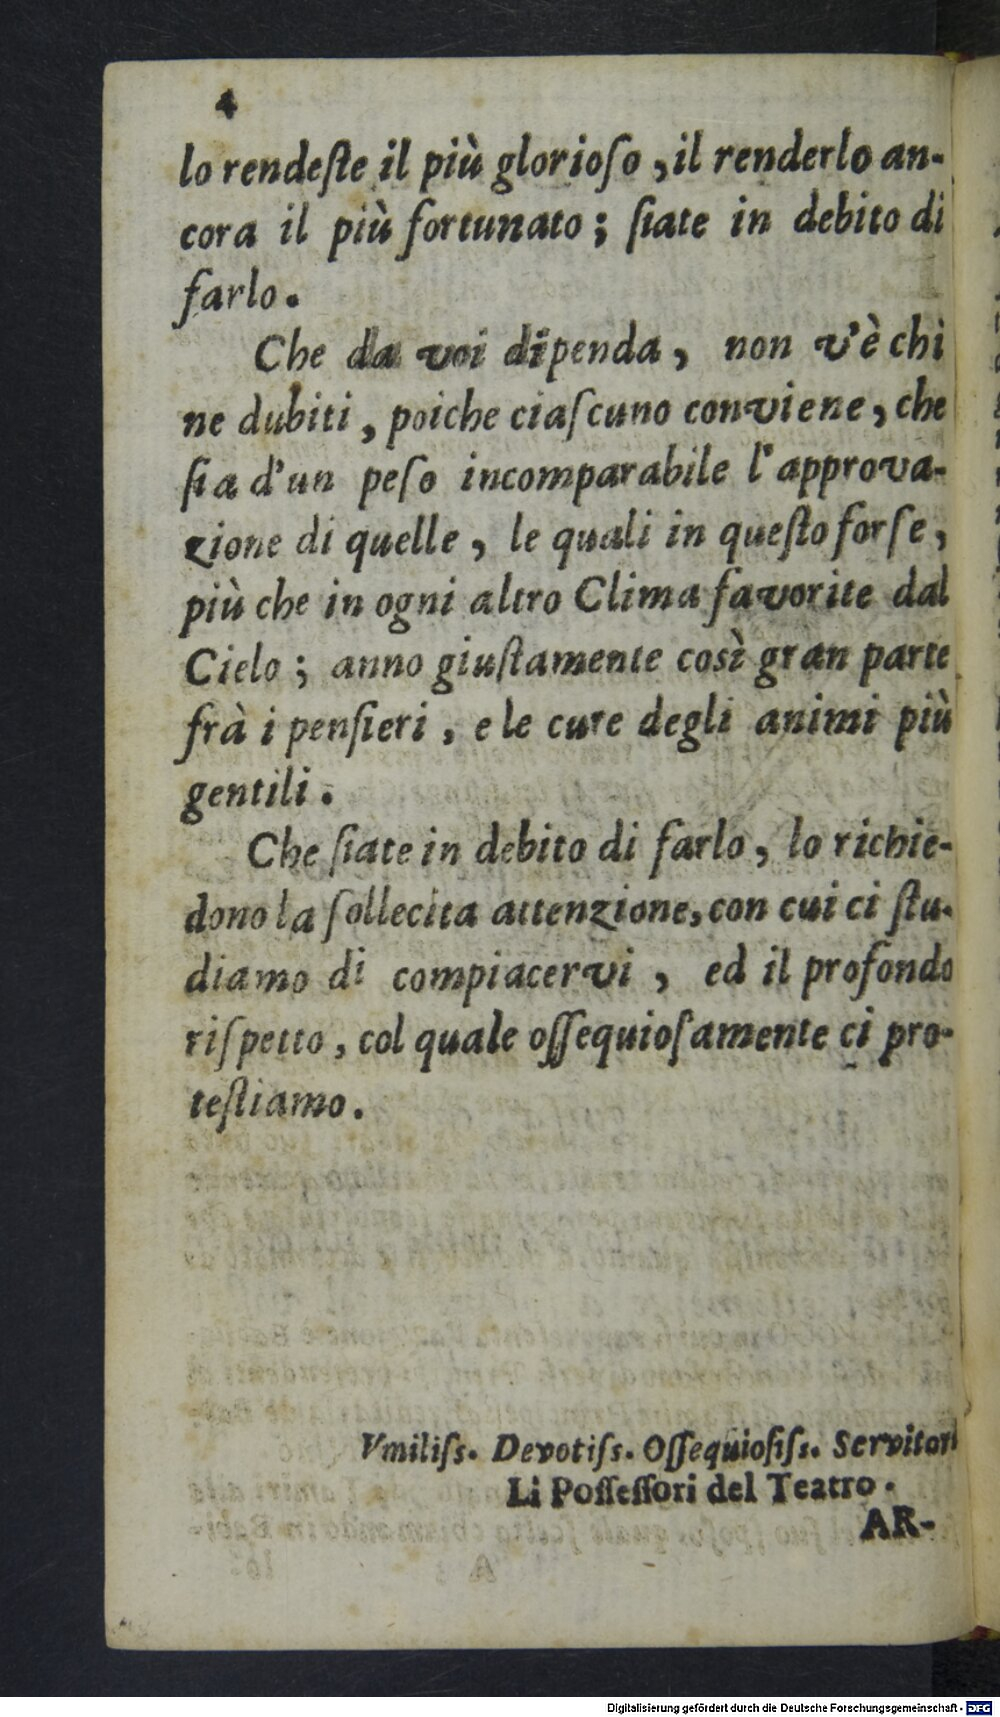 4
lo rendeſte il più glorioſo, il renderlo an-
cora il più fortunato; ſiate in debito di
farlo.
Che da voi dipenda, non v'è chi
ne dubiti, poiche ciaſcuno conviene, che
ſia d'un peſo incomparabile l'approva-
zione di quelle, le quali in queſto forſe,
più che in ogni altro Clima favorite dal
Cielo; anno giuſtamente così gran parte
frà i penſieri, e le cure degli animi più
gentili.
Che ſiate in debito di farlo, lo richie-
dono la ſollecita attenzione, con cui ci ſtu-
diamo di compiacervi, ed il profondo
riſpetto, col quale oſſequioſamente ci pro-
teſtiamo.
Vmiliſs. Devotiſs. Oſſequioſiſs. Servitori
Li Poſſeſſori del Teatro.
AR-
Digitalisierung gefördert durch die Deutsche Forschungsgemeinschaft - DFG